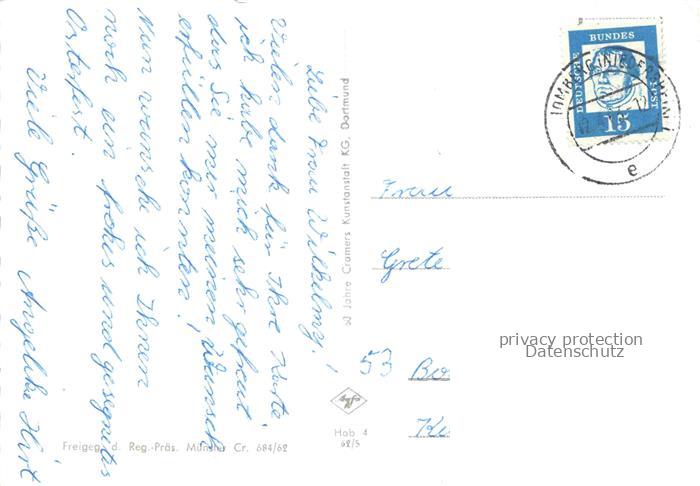 Liebe Frau Wilhelmy!
Vielen dank für Ihre Karte,
ich habe mich sehr gefreut
das Sie mir meinen Wunsch
erfüllen konnten!
Nun wünsche ich Ihnen
noch ein frohes und gesegnetes
Osterfest.
Viele Grüße Angelika Hirt
50 Jahre Cramers Kunstanstalt KG, Dortmund
DEUTSCHE
BUNDES
POST
15
HOMBERG (NIEDERRHEIN)
e
Frau
Grete
privacy protection
Datenschutz
53
Hob 4
62/5
Freigeg. d. Reg.-Präs. Münster Cr. 684/62